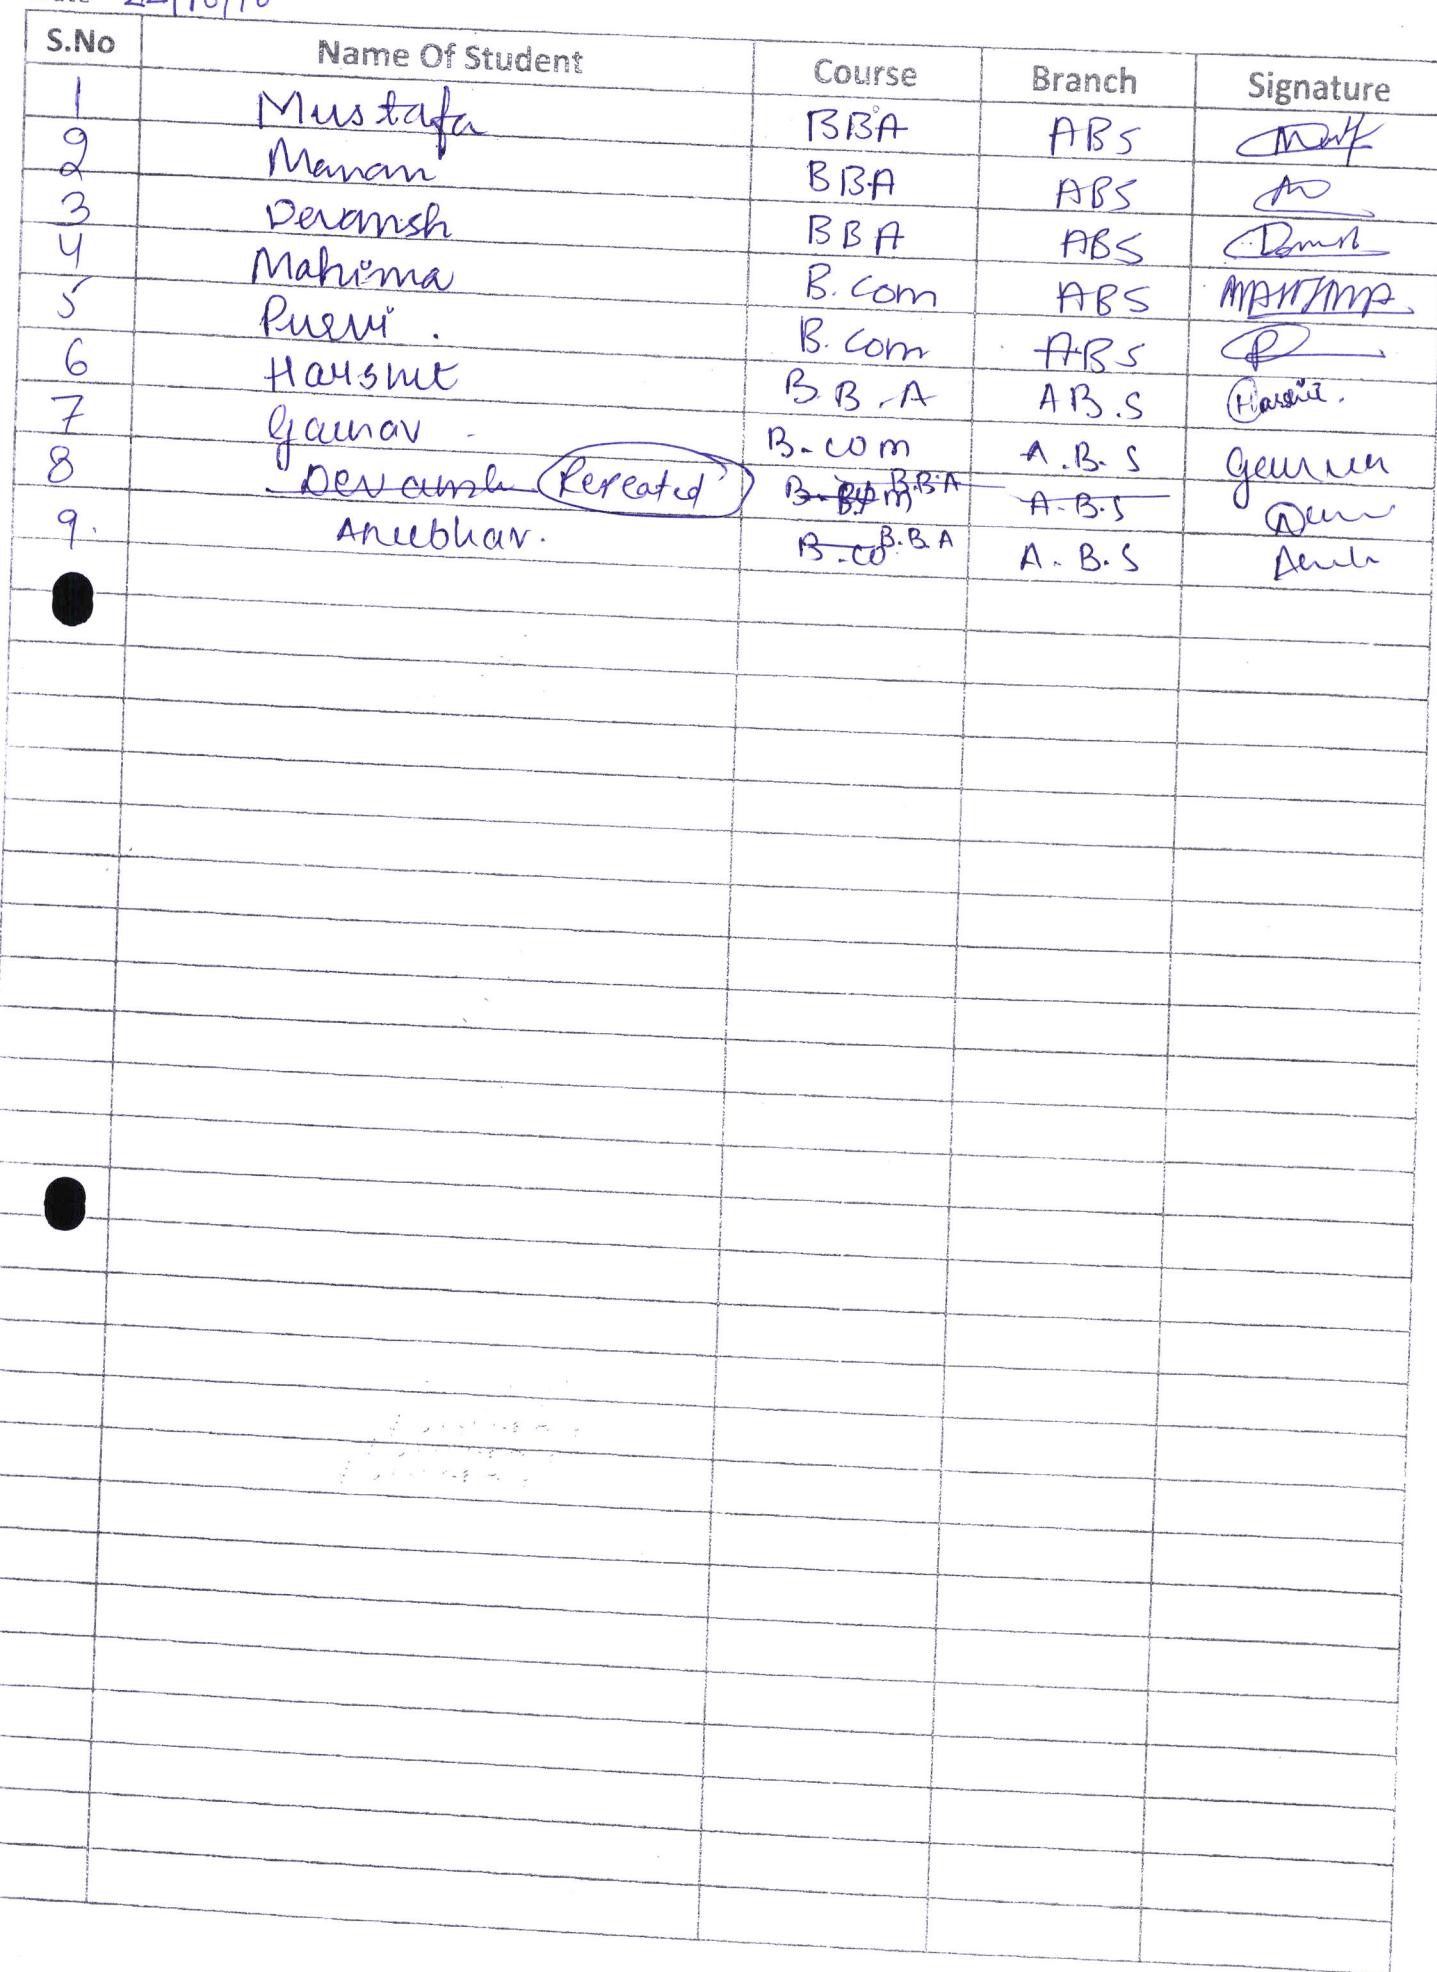 S.No Name Of Student Course Branch Signature
1 Mustafa BBA ABS
2 Manan BBA ABS
3 Devansh BBA ABS
4 Mahima B.Com ABS MAHIMA
5 Purvi. B.Com ABS
6 Harshit B.B.A AB.S Harshit.
7 Gaurav B.com A.B.S Gaurav
8 Devansh Repeated B.B.A A.B.S
9. Anubhav. B.co B.B.A A.B.S